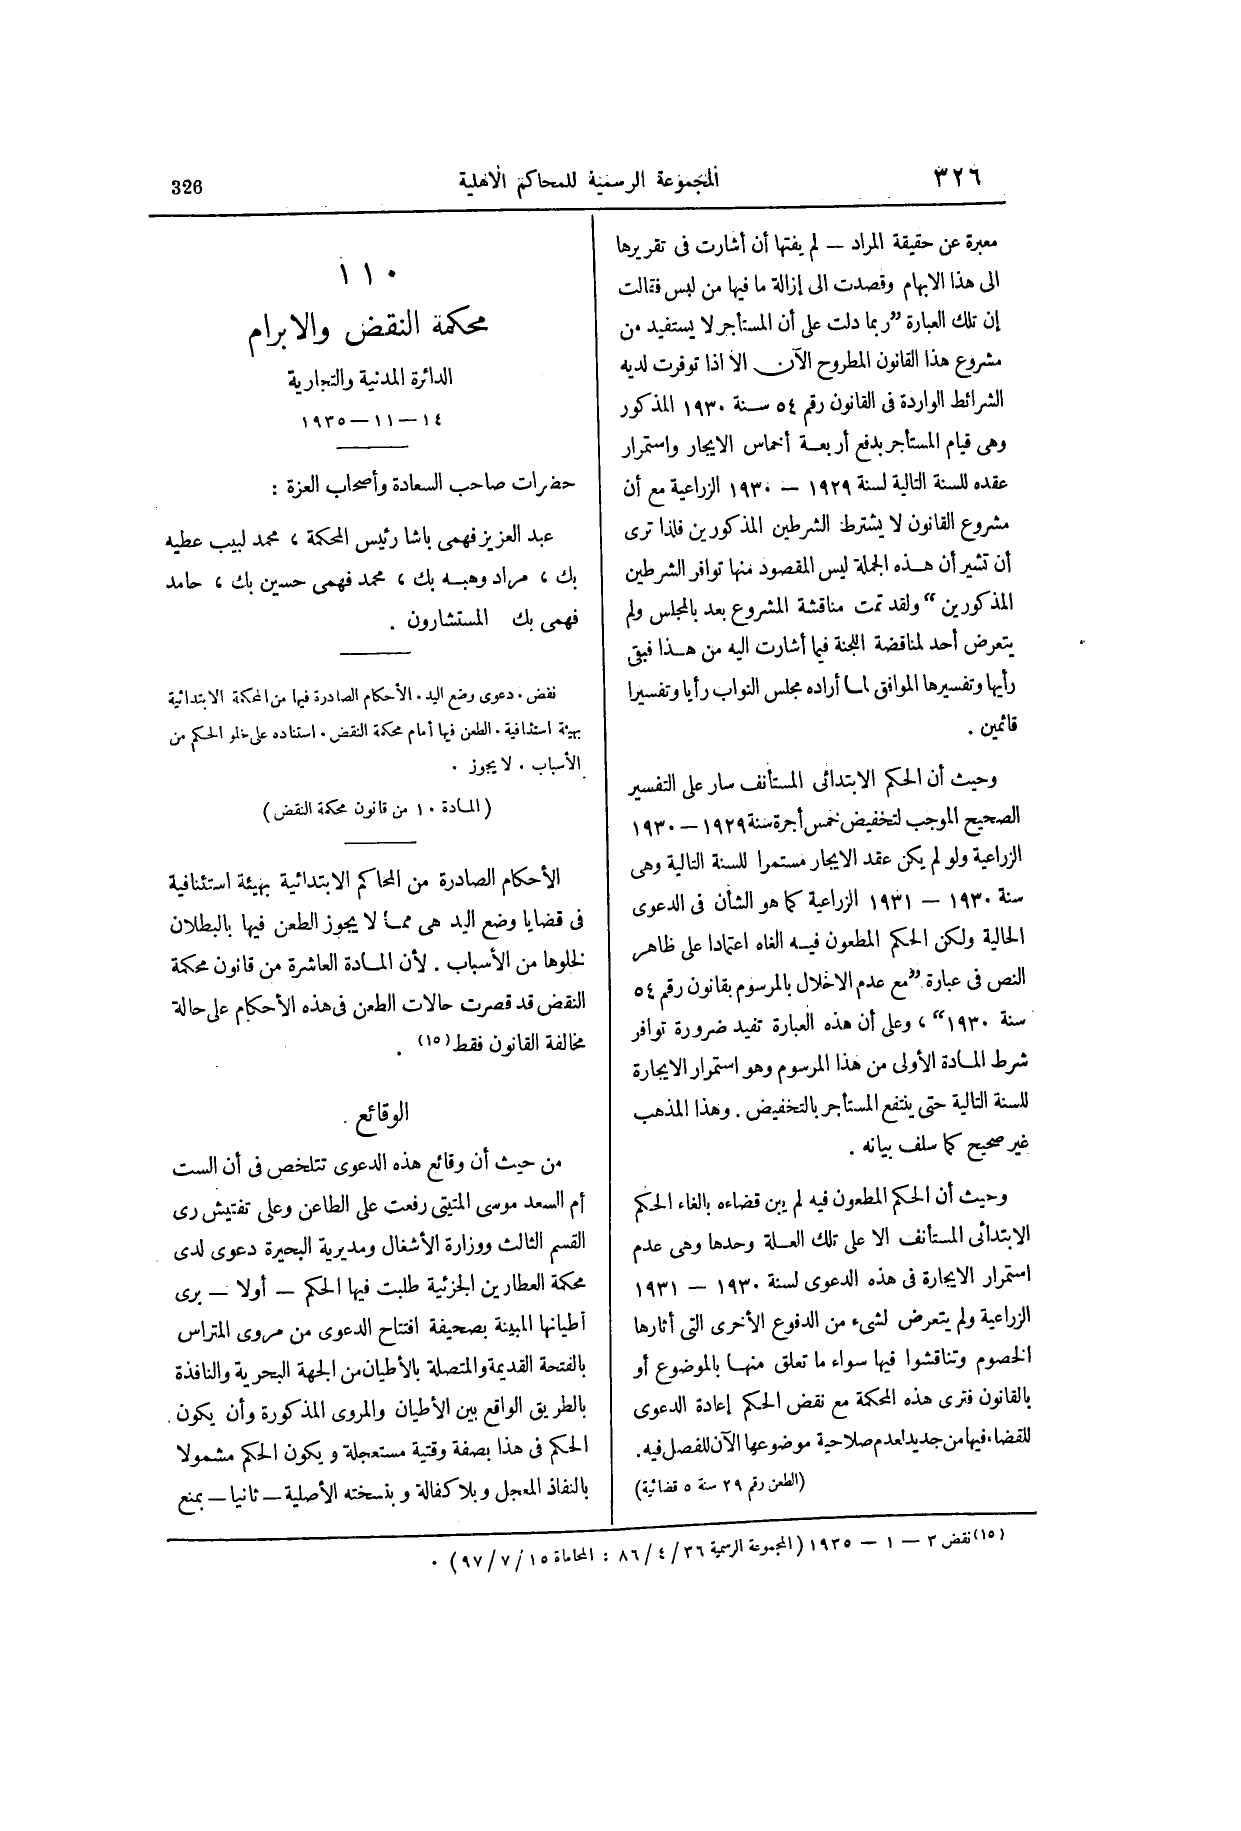 ٣٢٦
المجموعة الرسمية للمحاكم الاهلية
326
معبرة عن حقيقة المراد — لم يفتها أن أشارت فى تقريرها
الى هذا الابهام وقصدت الى إزالة ما فيها من لبس فقالت
إن تلك العبارة ”ربما دلت على أن المستأجر لا يستفيد من
مشروع هذا القانون المطروح الآن الا اذا توفرت لديه
الشرائط الواردة فى القانون رقم ٥٤ سنة ١٩٣٠ المذكور
وهى قيام المستأجر بدفع أربعة أخماس الايجار واستمرار
عقده للسنة التالية لسنة ١٩٢٩ — ١٩٣٠ الزراعية مع أن
مشروع القانون لا يشترط الشرطين المذكورين فلذا ترى
أن تشير أن هذه الجملة ليس المقصود منها توافر الشرطين
المذكورين“ ولقد تمت مناقشة المشروع بعد بالمجلس ولم
يتعرض أحد لمناقضة اللجنة فيما أشارت اليه من هذا فبقى
رأيها وتفسيرها الموافق لما أراده مجلس النواب رأيا وتفسيرا
قائمين .
وحيث أن الحكم الابتدائى المستأنف سار على التفسير
الصحيح الموجب لتخفيض خمس أجرة سنة ١٩٢٩ — ١٩٣٠
الزراعية ولو لم يكن عقد الايجار مستمرا للسنة التالية وهى
سنة ١٩٣٠ — ١٩٣١ الزراعية كما هو الشأن فى الدعوى
الحالية ولكن الحكم المطعون فيه الغاه اعتمادا على ظاهر
النص فى عبارة ”مع عدم الاخلال بالمرسوم بقانون رقم ٥٤
سنة ١٩٣٠“ ، وعلى أن هذه العبارة تفيد ضرورة توافر
شرط المادة الأولى من هذا المرسوم وهو استمرار الايجارة
للسنة التالية حتى ينتفع المستأجر بالتخفيض . وهذا المذهب
غير صحيح كما سلف بيانه .
وحيث أن الحكم المطعون فيه لم يبن قضاءه بالغاء الحكم
الابتدائى المستأنف الا على تلك العلة وحدها وهى عدم
استمرار الايجارة فى هذه الدعوى لسنة ١٩٣٠ — ١٩٣١
الزراعية ولم يتعرض لشىء من الدفوع الأخرى التى أثارها
الخصوم وتناقشوا فيها سواء ما تعلق منها بالموضوع أو
بالقانون فترى هذه المحكمة مع نقض الحكم إعادة الدعوى
للقضاء فيها من جديد لعدم صلاحية موضوعها الآن للفصل فيه .
(الطعن رقم ٢٩ سنة ٥ قضائية)
١١٠
محكمة النقض والابرام
الدائرة المدنية والتجارية
١٤ — ١١ — ١٩٣٥
حضرات صاحب السعادة وأصحاب العزة :
عبد العزيز فهمى باشا رئيس المحكمة ، محمد لبيب عطيه
بك ، مراد وهبه بك ، محمد فهمى حسين بك ، حامد
فهمى بك المستشارون .
نقض . دعوى وضع اليد . الأحكام الصادرة فيها من المحكمة الابتدائية
بهيئة استئنافية . الطعن فيها أمام محكمة النقض . استناده على خلو الحكم من
الأسباب . لا يجوز .
(المادة ١٠ من قانون محكمة النقض)
الأحكام الصادرة من المحاكم الابتدائية بهيئة استئنافية
فى قضايا وضع اليد هى مما لا يجوز الطعن فيها بالبطلان
لخلوها من الأسباب . لأن المادة العاشرة من قانون محكمة
النقض قد قصرت حالات الطعن فى هذه الأحكام على حالة
مخالفة القانون فقط (١٥) .
الوقائع .
من حيث أن وقائع هذه الدعوى تتلخص فى أن الست
أم السعد موسى المتيتى رفعت على الطاعن وعلى تفتيش رى
القسم الثالث ووزارة الأشغال ومديرية البحيرة دعوى لدى
محكمة العطارين الجزئية طلبت فيها الحكم — أولا — برى
أطيانها المبينة بصحيفة افتتاح الدعوى من مروى المتراس
بالفتحة القديمة والمتصلة بالأطيان من الجهة البحرية والنافذة
بالطريق الواقع بين الأطيان والمروى المذكورة وأن يكون
الحكم فى هذا بصفة وقتية مستعجلة ويكون الحكم مشمولا
بالنفاذ المعجل وبلا كفالة وبنسخته الأصلية — ثانيا — بمنع
(١٥) نقض ٣ — ١ — ١٩٣٥ (المجموعة الرسمية ٣٦/٤/٨٦ : المحاماة ١٥/٧/٩٧) .